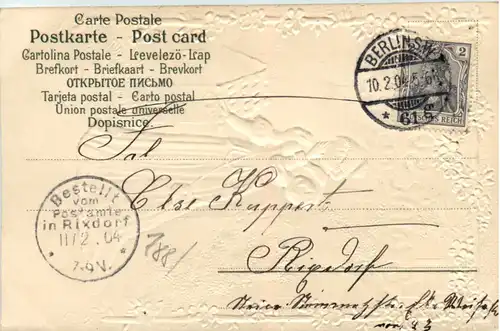 Carte Postale
Postkarte - Post card
Cartolina Postale - Levelező-Lap
Brefkort - Briefkaart - Brevkort
ОТКРЫТОЕ ПИСЬМО
Tarjeta postal - Carto postal
Union postale universelle
Dopisnice
BERLIN SW.
10.2.04.5-6N.
* 61 g
2
REICH
Frl.
Else Kuppert
Rixdorf
Bestellt
vom
Postamte
in Rixdorf
11/2.04
7-9V.
188/